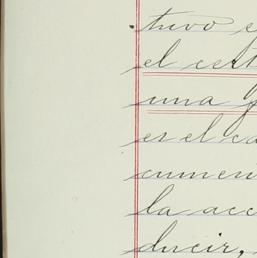 tuvo e
el cert
una f
es el ca
cumen
la acc
ducir,